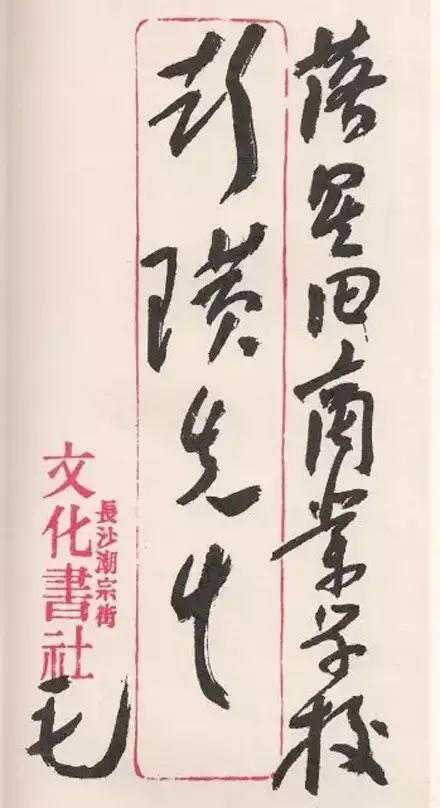 落星田商業学校
彭璜先生
長沙潮宗街
文化書社
毛